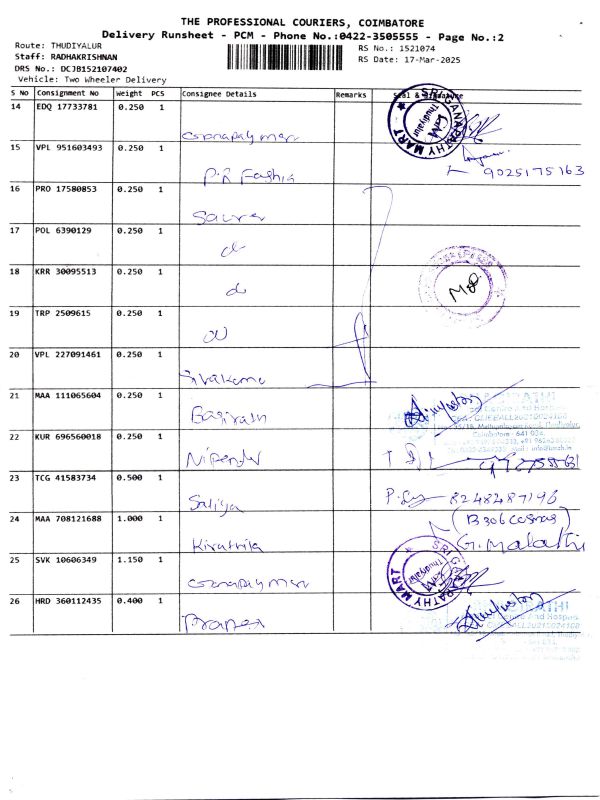 THE PROFESSIONAL COURIERS, COIMBATORE
Delivery Runsheet - PCM - Phone No.:0422-3505555 - Page No.:2
Route: THUDIYALUR
Staff: RADHAKRISHNAN
DRS No.: DCJB152107402
Vehicle: Two Wheeler Delivery
RS No.: 1521074
RS Date: 17-Mar-2025
S No Consignment No Weight PCS Consignee Details Remarks Seal & Signature
14 EDQ 17733781 0.250 1
SRI GANAPATHY MART
Thudiyalur
15 VPL 951603493 0.250 1 P.R Fashia
9025175163
16 PRO 17580853 0.250 1
17 POL 6390129 0.250 1
18 KRR 30095513 0.250 1
19 TRP 2509615 0.250 1
20 VPL 227091461 0.250 1 Sivakamu
21 MAA 111065604 0.250 1
22 KUR 696560018 0.250 1
Coimbatore - 641 034
23 TCG 41583734 0.500 1 Saliya 8248487196
24 MAA 708121688 1.000 1 Kiruthika (B306 Cosmos)
G. Malathi
25 SVK 10606349 1.150 1
SRI GANAPATHY MART
Thudiyalur
26 HRD 360112435 0.400 1